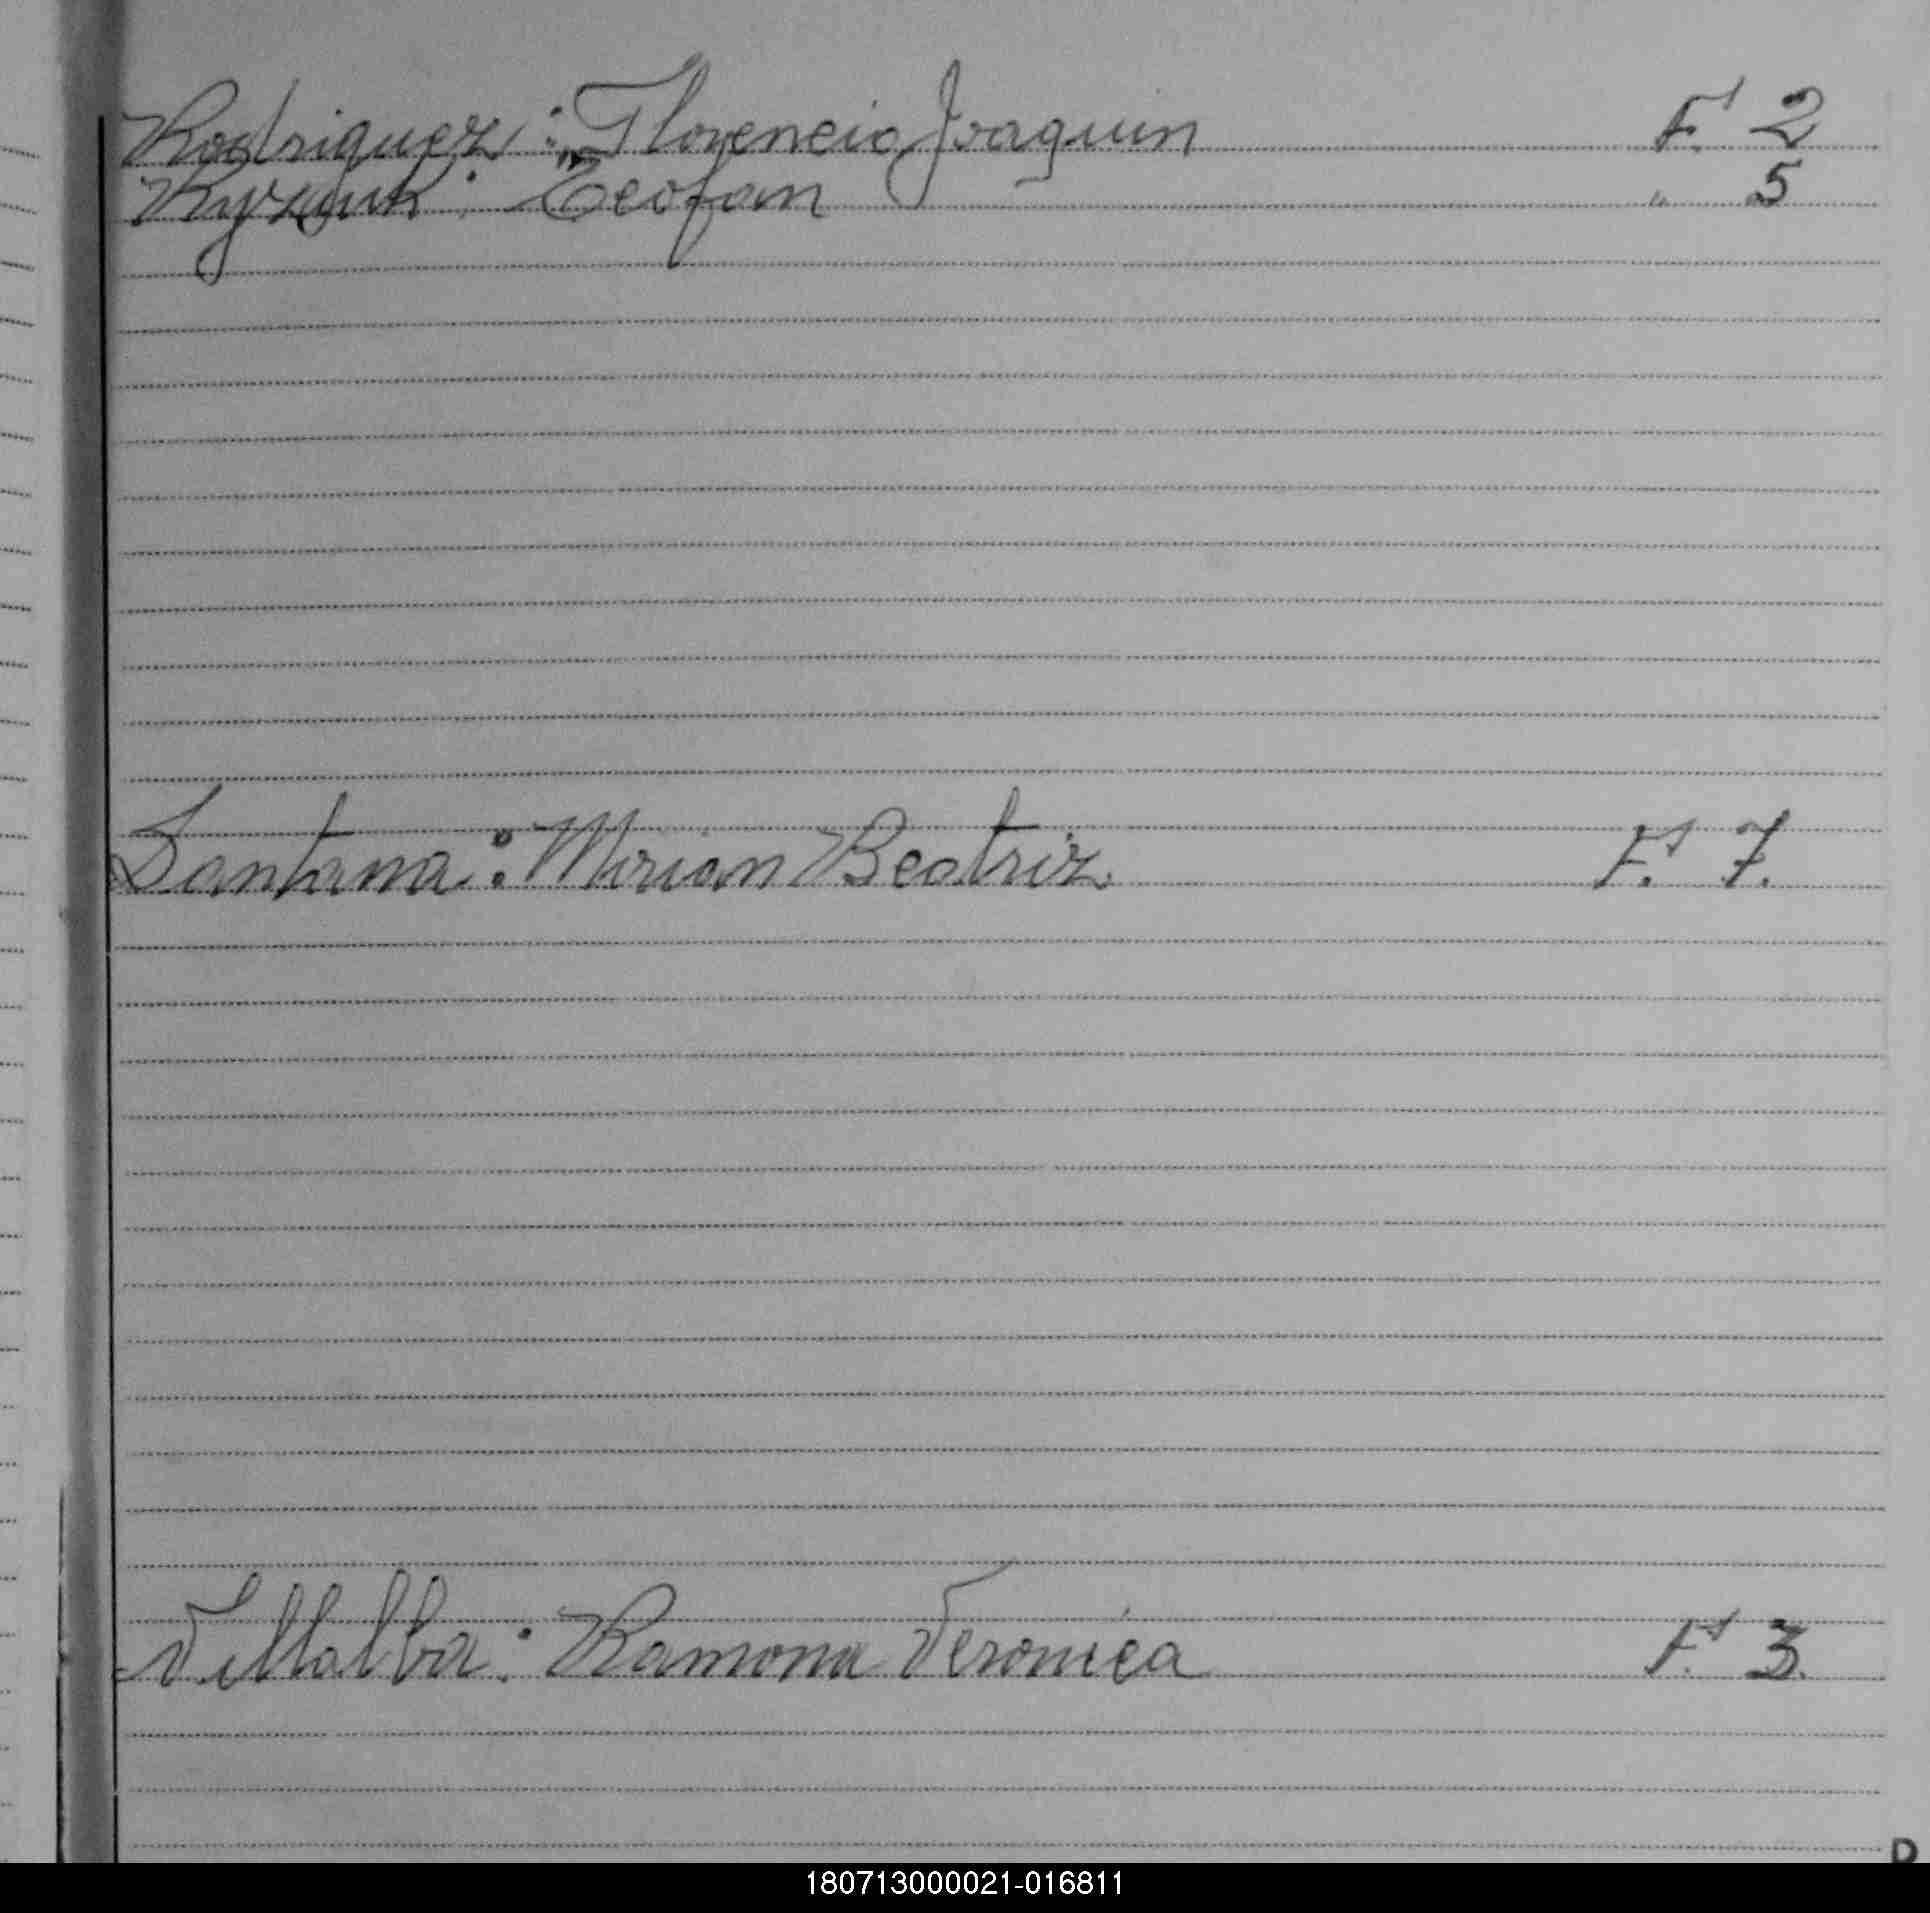 Rodriguez: Florencio Joaquin F. 2
Teofan " 5
Santana: Mirian Beatriz F. 7.
Villalba: Ramona Veronica F. 3.
180713000021-016811